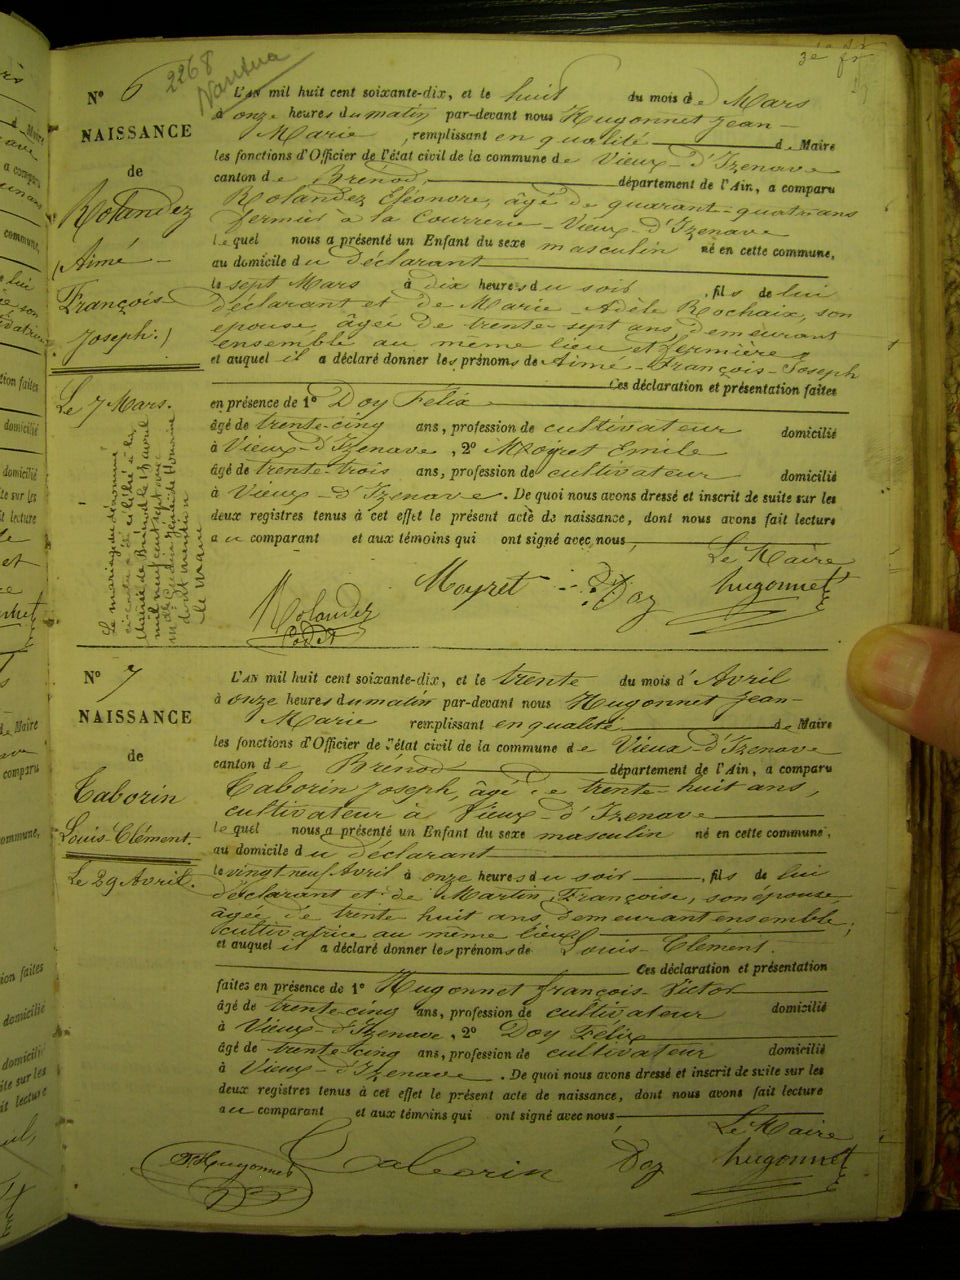 3e fr
2268
Nantua
N° 6
NAISSANCE
de
Rolandez
(Aimé
François
Joseph.)
Le 7 Mars.
Le mariage du dénommé
célébré à la
Mairie de Brénod le 18 avril
mil neuf cent sept avec
Honorine
dont mention
Le Maire
L'AN mil huit cent soixante-dix, et le huit du mois de Mars
à onze heures du matin par-devant nous Hugonnet Jean-
Marie, remplissant en qualité de Maire
les fonctions d'Officier de l'état civil de la commune de Vieux-d'Izenave
canton de Brénod, département de l'Ain, a comparu
Rolandez Eléonore, âgé de quarant-quatre ans
fermier à la Courrerie Vieux-d'Izenave
lequel nous a présenté un Enfant du sexe masculin né en cette commune,
au domicile du déclarant
le sept Mars à dix heures du soir, fils de lui
déclarant et de Marie-Adèle Rochaix, son
épouse, âgée de trente-sept ans, demeurant
ensemble au même lieu et fermière,
et auquel il a déclaré donner les prénoms de Aimé-François-Joseph
Ces déclaration et présentation faites
en présence de 1° Doy Félix
âgé de trente-cinq ans, profession de cultivateur domicilié
à Vieux-d'Izenave, 2° Moyret Emile
âgé de trente-trois ans, profession de cultivateur domicilié
à Vieux-d'Izenave. De quoi nous avons dressé et inscrit de suite sur les
deux registres tenus à cet effet le présent acte de naissance, dont nous avons fait lecture
au comparant et aux témoins qui ont signé avec nous,
Le Maire
Rolandez
Moyret Doy hugonnet
N° 7
NAISSANCE
de
Taborin
Louis-Clément.
Le 29 Avril.
L'AN mil huit cent soixante-dix, et le trente du mois d'Avril
à onze heures du matin par-devant nous Hugonnet Jean-
Marie remplissant en qualité de Maire
les fonctions d'Officier de l'état civil de la commune de Vieux-d'Izenave
canton de Brénod département de l'Ain, a comparu
Taborin Joseph, âgé de trente-huit ans,
cultivateur à Vieux-d'Izenave
lequel nous a présenté un Enfant du sexe masculin né en cette commune,
au domicile du déclarant
le vingt neuf Avril à onze heures du soir, fils de lui
déclarant et de Martin Françoise, son épouse,
âgée de trente huit ans, demeurant ensemble,
cultivatrice au même lieu
et auquel il a déclaré donner les prénoms de Louis-Clément.
Ces déclaration et présentation
faites en présence de 1° Hugonnet françois-Victor
âgé de trente-cinq ans, profession de cultivateur domicilié
à Vieux-d'Izenave, 2° Doy Félix
âgé de trente cinq ans, profession de cultivateur domicilié
à Vieux-d'Izenave. De quoi nous avons dressé et inscrit de suite sur les
deux registres tenus à cet effet le présent acte de naissance, dont nous avons fait lecture
au comparant et aux témoins qui ont signé avec nous,
Le Maire
Hugonnet Taborin Doy hugonnet